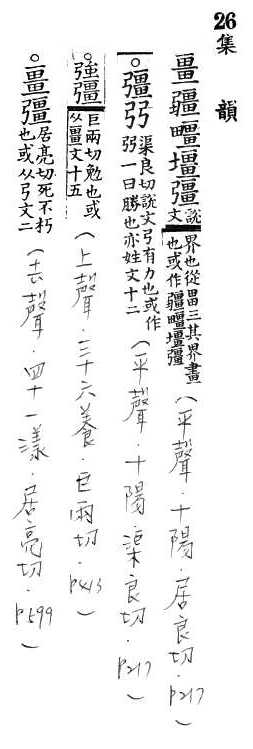 26
集韻
畺疆䵼壃彊說文界也從畕三其界畫也或作疆壃彊(平聲.十陽.居良切.P217)
。彊弜渠良切說文弓有力也或作弜一曰勝也亦姓文十二(平聲.十陽.渠良切.P217)
。強彊巨兩切勉也或从畺文十五(上聲.三十六養.巨兩切.P413)
。畺彊居亮切死不朽也或从弓文二(去聲.四十一漾.居亮切.P599)